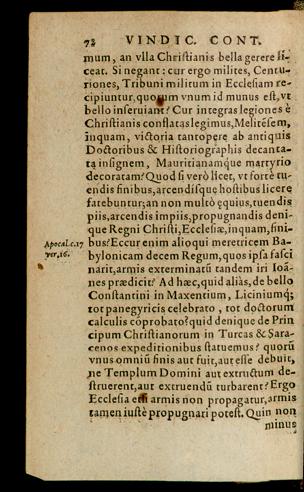 72 VINDIC. CONT.
mum, an vlla Christianis bella gerere li-
ceat. Si negant: cur ergo milites, Centu-
riones, Tribuni militum in Ecclesiam re-
cipiuntur, quorum vnum id munus est, vt
bello inseruiant? Cur integras legiones è
Christianis conflatas legimus, Melitēsem,
inquam, victoria tantopere ab antiquis
Doctoribus & Historiographis decanta-
ta insignem, Mauritianamque martyrio
decoratam? Quod si verò licet, vt fortè tu-
endis finibus, arcendísque hostibus licere
fatebuntur: an non multò ęquius, tuendis
piis, arcendis impiis, propugnandis deni-
que Regni Christi, Ecclesiæ, inquam, fini-
Apocal.c.17
ver.16.
bus? Eccur enim alioqui meretricem Ba-
bylonicam decem Regum, quos ipsa fasci
narit, armis exterminatū tandem iri Ioā-
nes prædicit? Ad hæc, quid aliàs, de bello
Constantini in Maxentium, Liciniuḿq;
tot panegyricis celebrato, tot doctorum
calculis coprobato? quid denique de Prin
cipum Christianorum in Turcas & Sara-
cenos expeditionibus statuemus? quorū
vnus omniū finis aut fuit, aut esse debuit,
ne Templum Domini aut extructum de-
struerent, aut extruendū turbarent? Ergo
Ecclesia etsi armis non propagatur, armis
tamen iustè propugnari potest. Quin non
minus